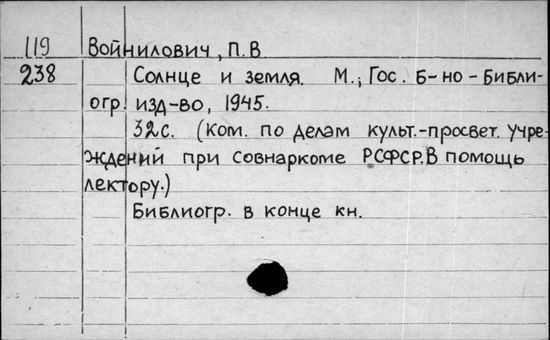 119 Войнилович, П.В
238 Солнце и земля. М., Гос. б-но-библи-
огр. изд-во, 1945.
32с. (Ком. по делам культ.-просвет. учре-
ждений при Совнаркоме РСФСР. В помощь
лектору.)
Библиогр. в конце кн.